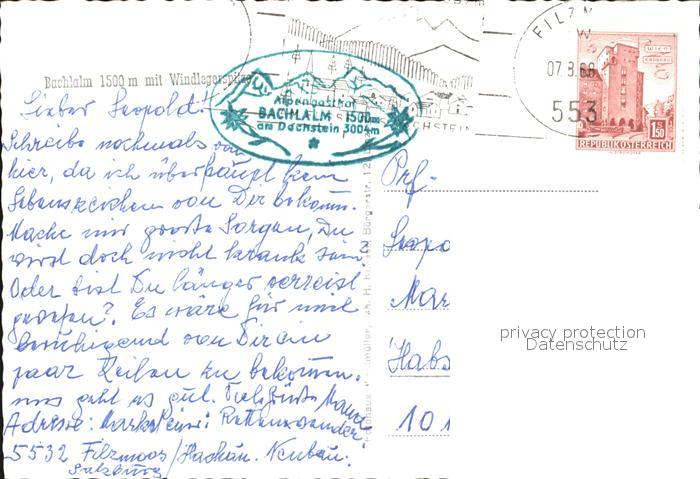 Bachlalm 1500 m mit Windlegerspitze
Alpengasthof
BACHLALM - 1500m
am Dachstein 3004m
FILZM
07.8.68
553
WIEN
ERDBERG
1.50
REPUBLIK ÖSTERREICH
Lieber Leopold!
Schreibe nochmals von
hier, da ich überhaupt kein
Lebenszeichen von Dir bekomm.
Mache mir große Sorgen, Du
wirst doch nicht krank sein?
Oder bist Du länger verreist
gewesen? Es wäre für mich
beruhigend von Dir ein
paar Zeilen zu bekommen.
uns geht es gut. Viele Grüße
Adresse:
5532 Filzmoos/Hachau. Neubau.
Salzburg
Prf.
Leopo
Mar
Habs
101
privacy protection
Datenschutz